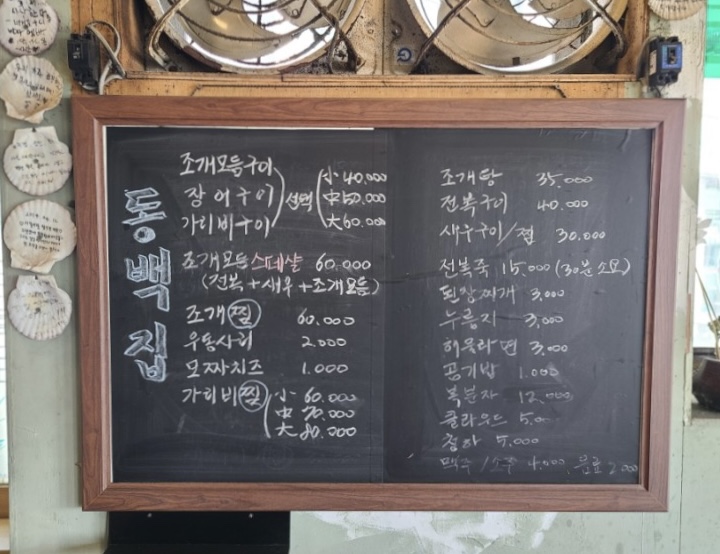 동백집
조개모듬구이
장어구이
가리비구이
선택
小 40.000
中 50.000
大 60.000
조개모듬스페샬 60.000
(전복+새우+조개모듬)
조개찜 60.000
우동사리 2.000
모짜치즈 1.000
가리비찜 小 60.000
中 70.000
大 80.000
조개탕 35.000
전복구이 40.000
새우구이/찜 30.000
전복죽 15.000 (30분 소요)
된장찌개 3,000
누룽지 3,000
해물라면 3,000
공기밥 1.000
복분자 12,000
클라우드 5,000
청하 5,000
맥주/소주 4,000, 음료 2000